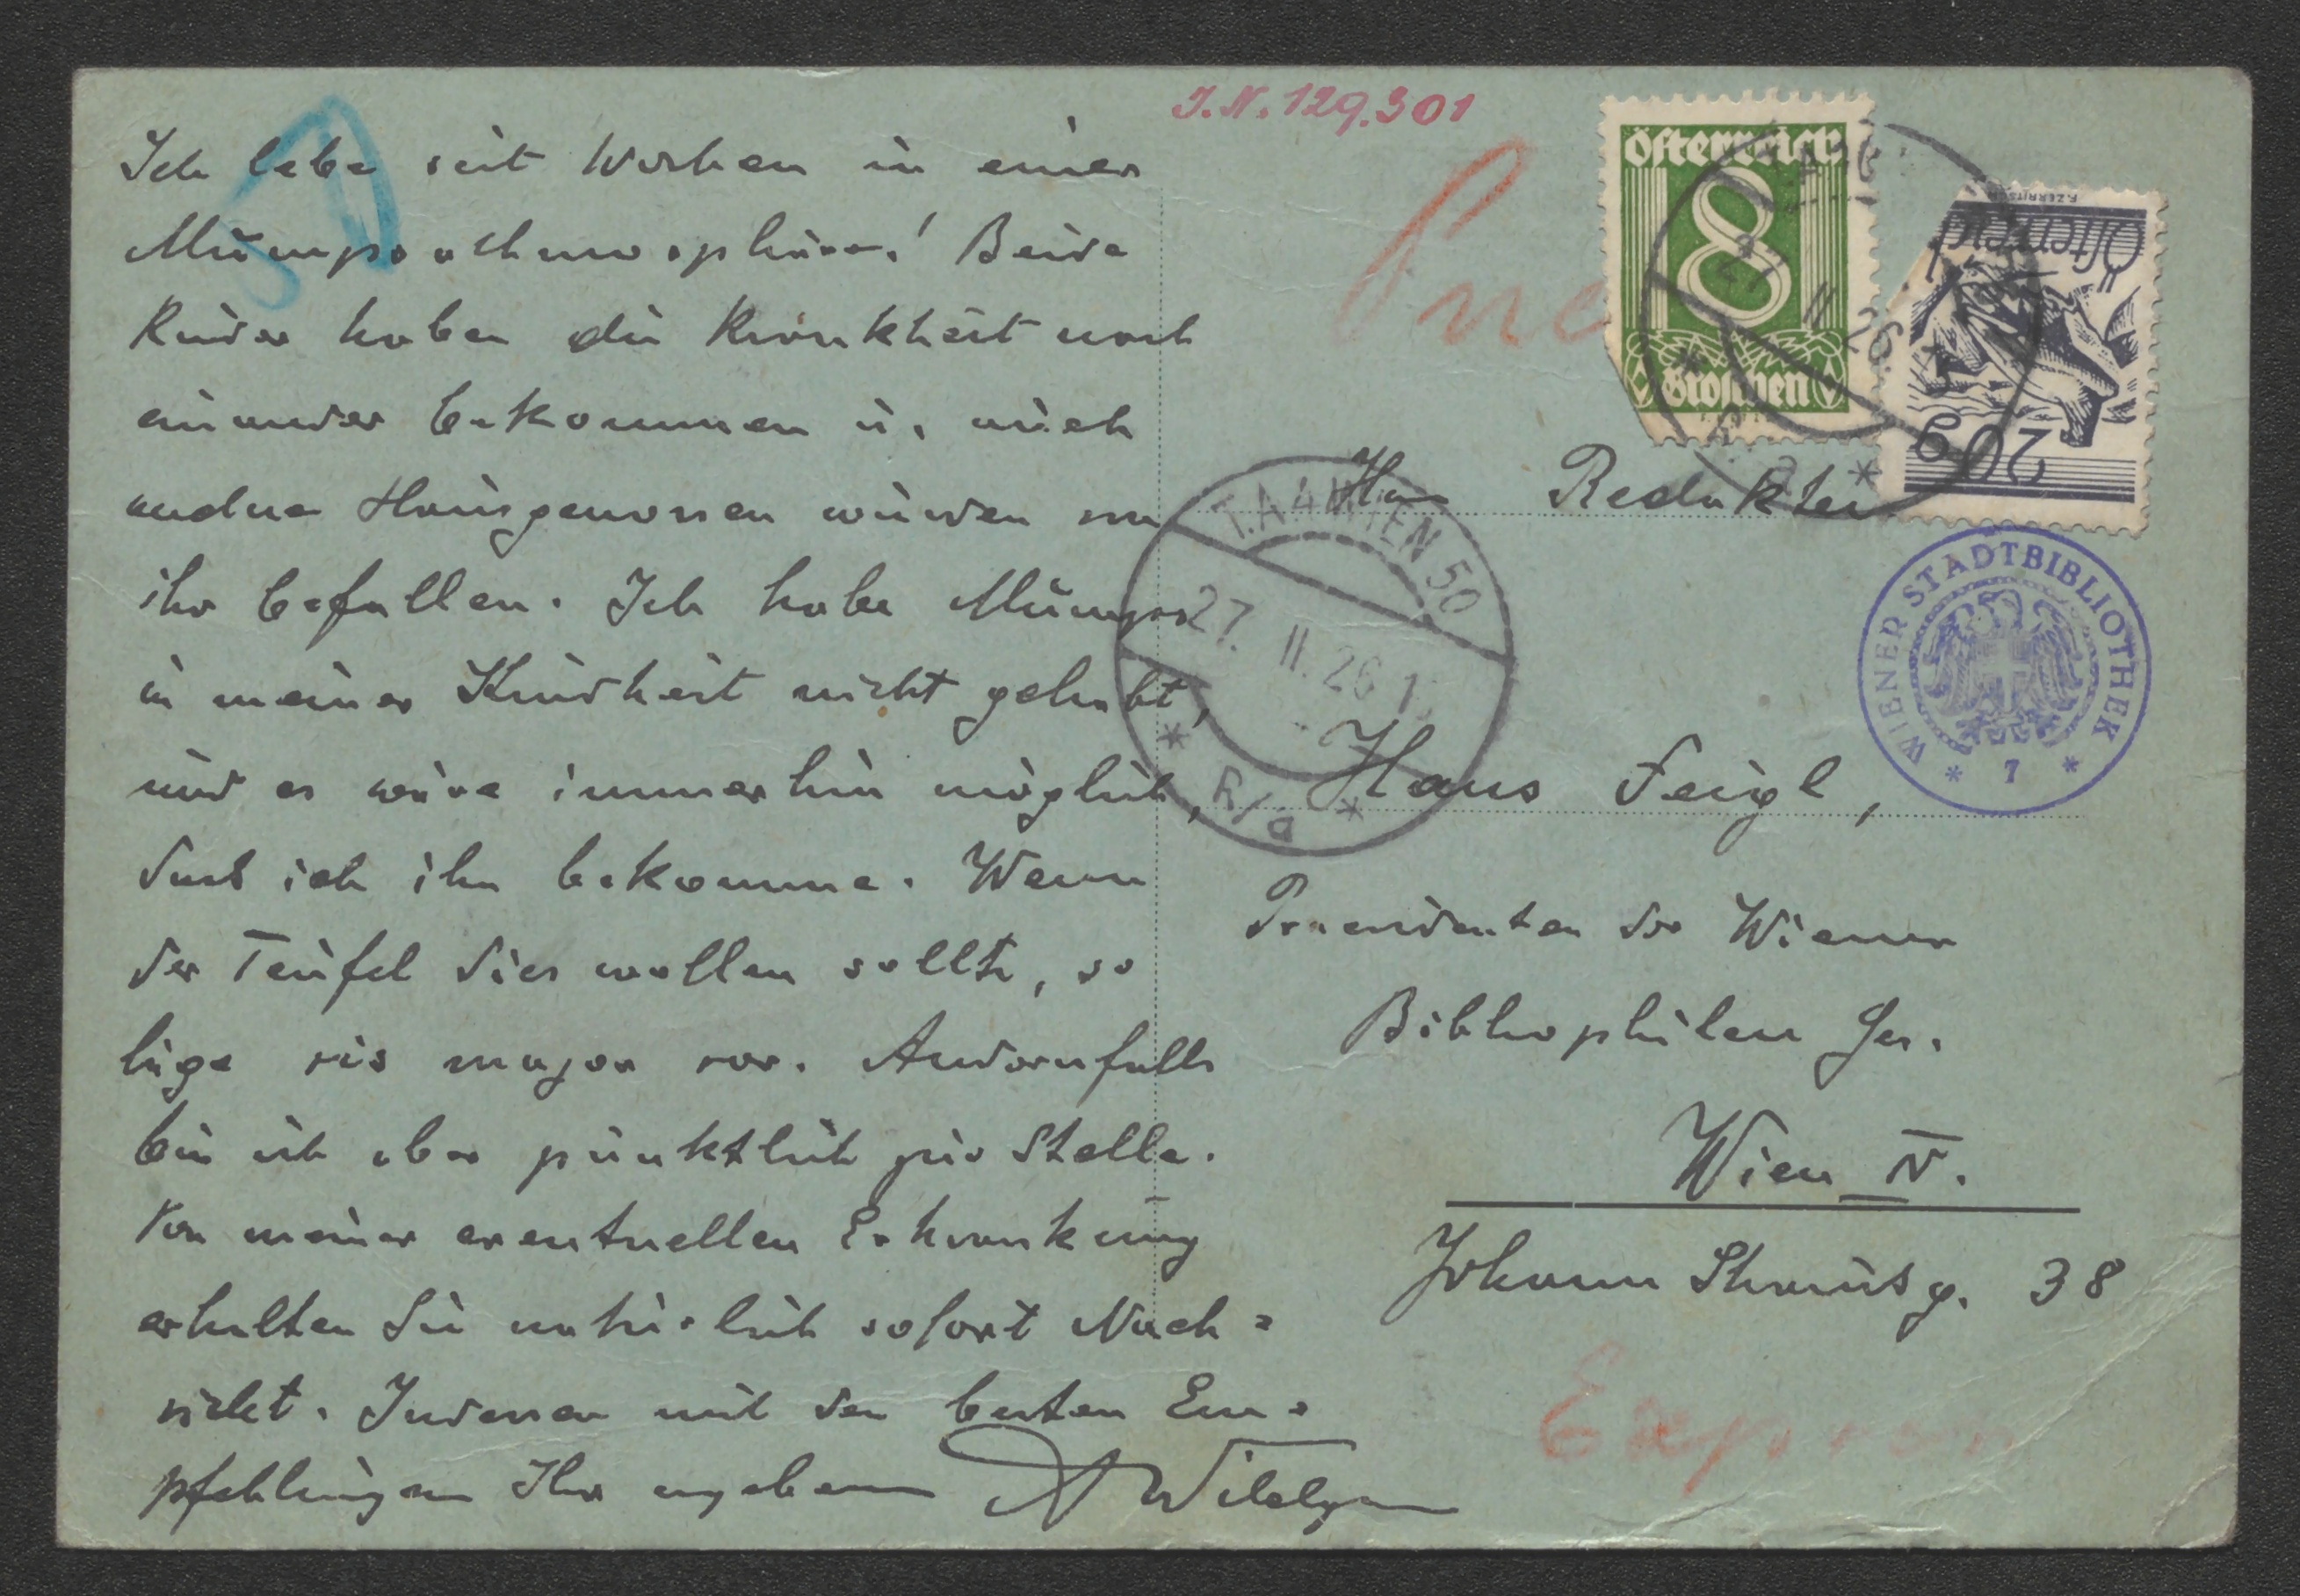 J.N. 129.301
Ich lebe seit Wochen in einer
Mumpsathmosphäre! Beide
Kinder haben die Krankheit nach
einander bekommen u. auch
andere Hausgenossen wurden von
ihr befallen. Ich habe Mumps
in meiner Kindheit nicht gehabt,
und es wäre immerhin möglich,
daß ich ihn bekomme. Wenn
der Teufel dies wollen sollte, so
läge vis major vor. Andernfalls
bin ich aber pünktlich zur Stelle.
Von meiner eventuellen Erkrankung
erhalten Sie natürlich sofort Nach=
richt. Indessen mit den besten Em=
pfehlungen Ihr ergebener AWildgans
Pne
Österreich
8
Groschen
Österreich
20g
27. II. 26
T.A. WIEN 50
27. II. 26 1
* R/a *
WIENER STADTBIBLIOTHEK
* 7 *
Herrn Redakteur
Hans Feigl,
Praesidenten der Wiener
Bibliophilen Ges.
Wien IV.
Johann Straußg. 38
Express